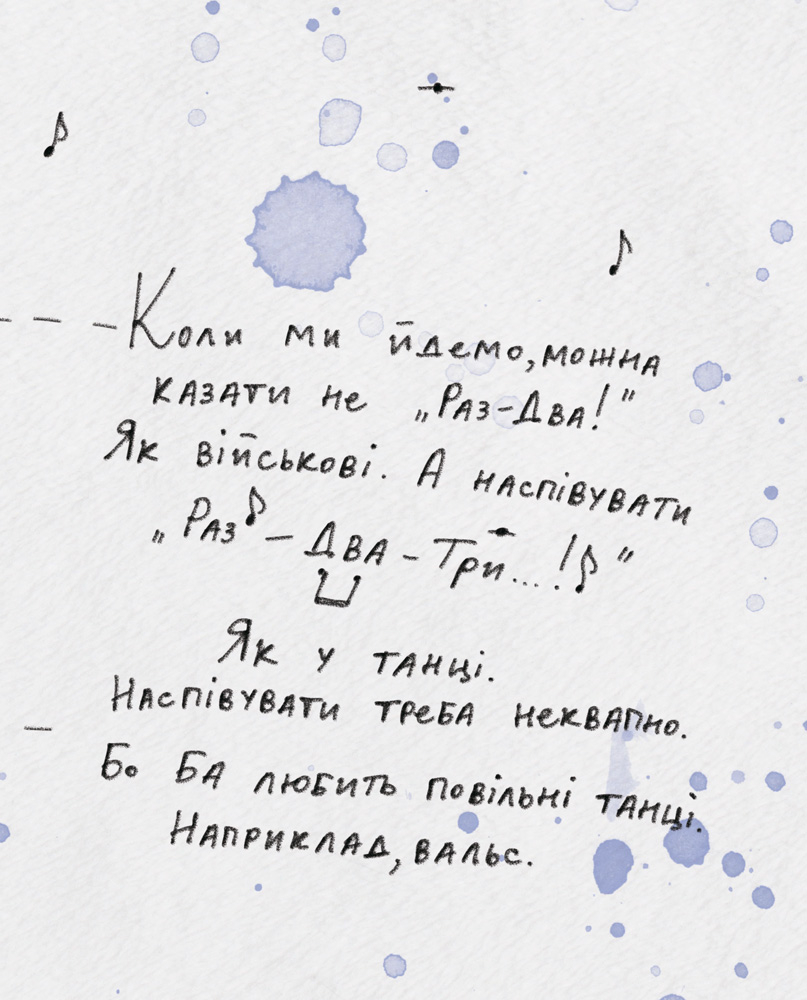 Коли ми йдемо, можна
казати не „Раз-Два!”
Як військові. А наспівувати
„Раз – Два – Три...!”
Як у танці.
Наспівувати треба неквапно.
Бо Ба любить повільні танці.
Наприклад, вальс.